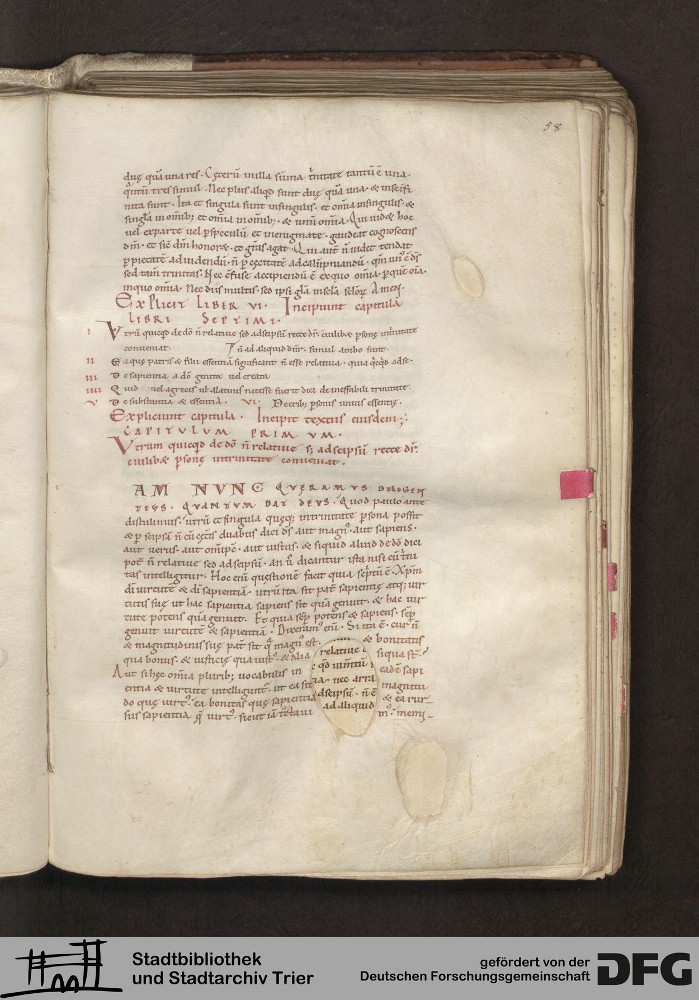 58
duę quā una res. Cęterū in illa sūma t'nitate tantū ē una.
q̄ntū tres simul. Nec plus aliq̇d sunt duę quā una. & in se infi
nita sunt. Ita et singula sunt in singulis. et om̄ia in singulis. &
singl̄a in om̄ib; et om̄ia in om̄ib; & unū om̄ia. Qui uid& hoc
uel ex parte uel p speculū et in enigmate. gaudeat cognoscens
dm̄. et sic dm̄ honor& et gr̄as agat. Qui aut̄ n̄ uidet tendat
p pietatē ad uidendū. n̄ p cęcitatē ad calūpniandū. qm̄ un' ē ds̄
sed tam̄ trinitas. Nec c̄fuse accipiendū ē ex quo om̄ia. p quē om̄ia.
in quo om̄ia. Nec diis multis. sed ipsi gl̄a in sc̄la sc̄lor̄. Amen.
Explicit liber vi. Incipiunt capitula
libri septimi.
i Vtrū quicqd de dō n̄ relatiue sed ad se ipsū recte dr̄. cuilib& psonę in t'nitate
conueniat. n̄ ad aliquid dnr̄. simul ambo sunt.
ii Ea quę patris & filii essentiā significant n̄ esse relatiua. quia qcqd ad se.
iii De sapientia a dō genita uel creata
iiii Quid uel a grecis ul̄ a latinis necesse fuerit dici de ineffabili trinitate.
v De substantia & essentia. vi. De trib; psonis unius essentię.
Expliciunt capitula. Incipit textus eiusdem;
CAPITULUM PRIMUM.
Vtrum quicqd de dō n̄ relatiue s; ad se ipsū recte dr̄.
cuilib& psonę in trinitate conueniat.
AM NVNC QVĘRAMVS DILIGEN
TIVS. QVANTVM DAT DEVS. Quod paulo ante
distulimus. utrū et singula quęq; in trinitate psona possit
& p se ipsā n̄ cū cęt'is duabus dici ds̄ aut magn'. aut sapiens.
aut uerus. aut om̄ips̄. aut iustus. & siquid aliud de dō dici
pot̄ n̄ relatiue sed ad se ipsū. an ū dicantur ista nisi cū t'ni
tas intelligitur. Hoc enī questionē facit quia sc̄ptū ē. Xpm̄
di uirtutē & di sapientiā. utrū ita sit pat̄ sapientię atq; uir
tutis suę ut hac sapientia sapiens sit quā genuit. & hac uir
tute potens quā genuit. Et quia semp potens & sapiens. semp
genuit uirtutē & sapientiā. Dixeram' enī. Si ita ē. cur n̄
& magnitudinis suę pat̄ sit q̄ magn' est. & bonitatis
qua bonus. & iusticię qua iust'. & alia relatiue siqua st̄.
Aut si hęc om̄ia plurib; uocabulis in qd̄ inuitū eadē sapi
entia & uirtute intelligunt. ut ea sit nec magnitu
do quę uirt'. ea bonitas quę sapientia ad se ipsū. n̄ ē & ea rur
sus sapientia q̄ uirt'. sicut iā t̄ctaui ad aliquid m'. memi
Stadtbibliothek
und Stadtarchiv Trier
gefördert von der
Deutschen Forschungsgemeinschaft
DFG